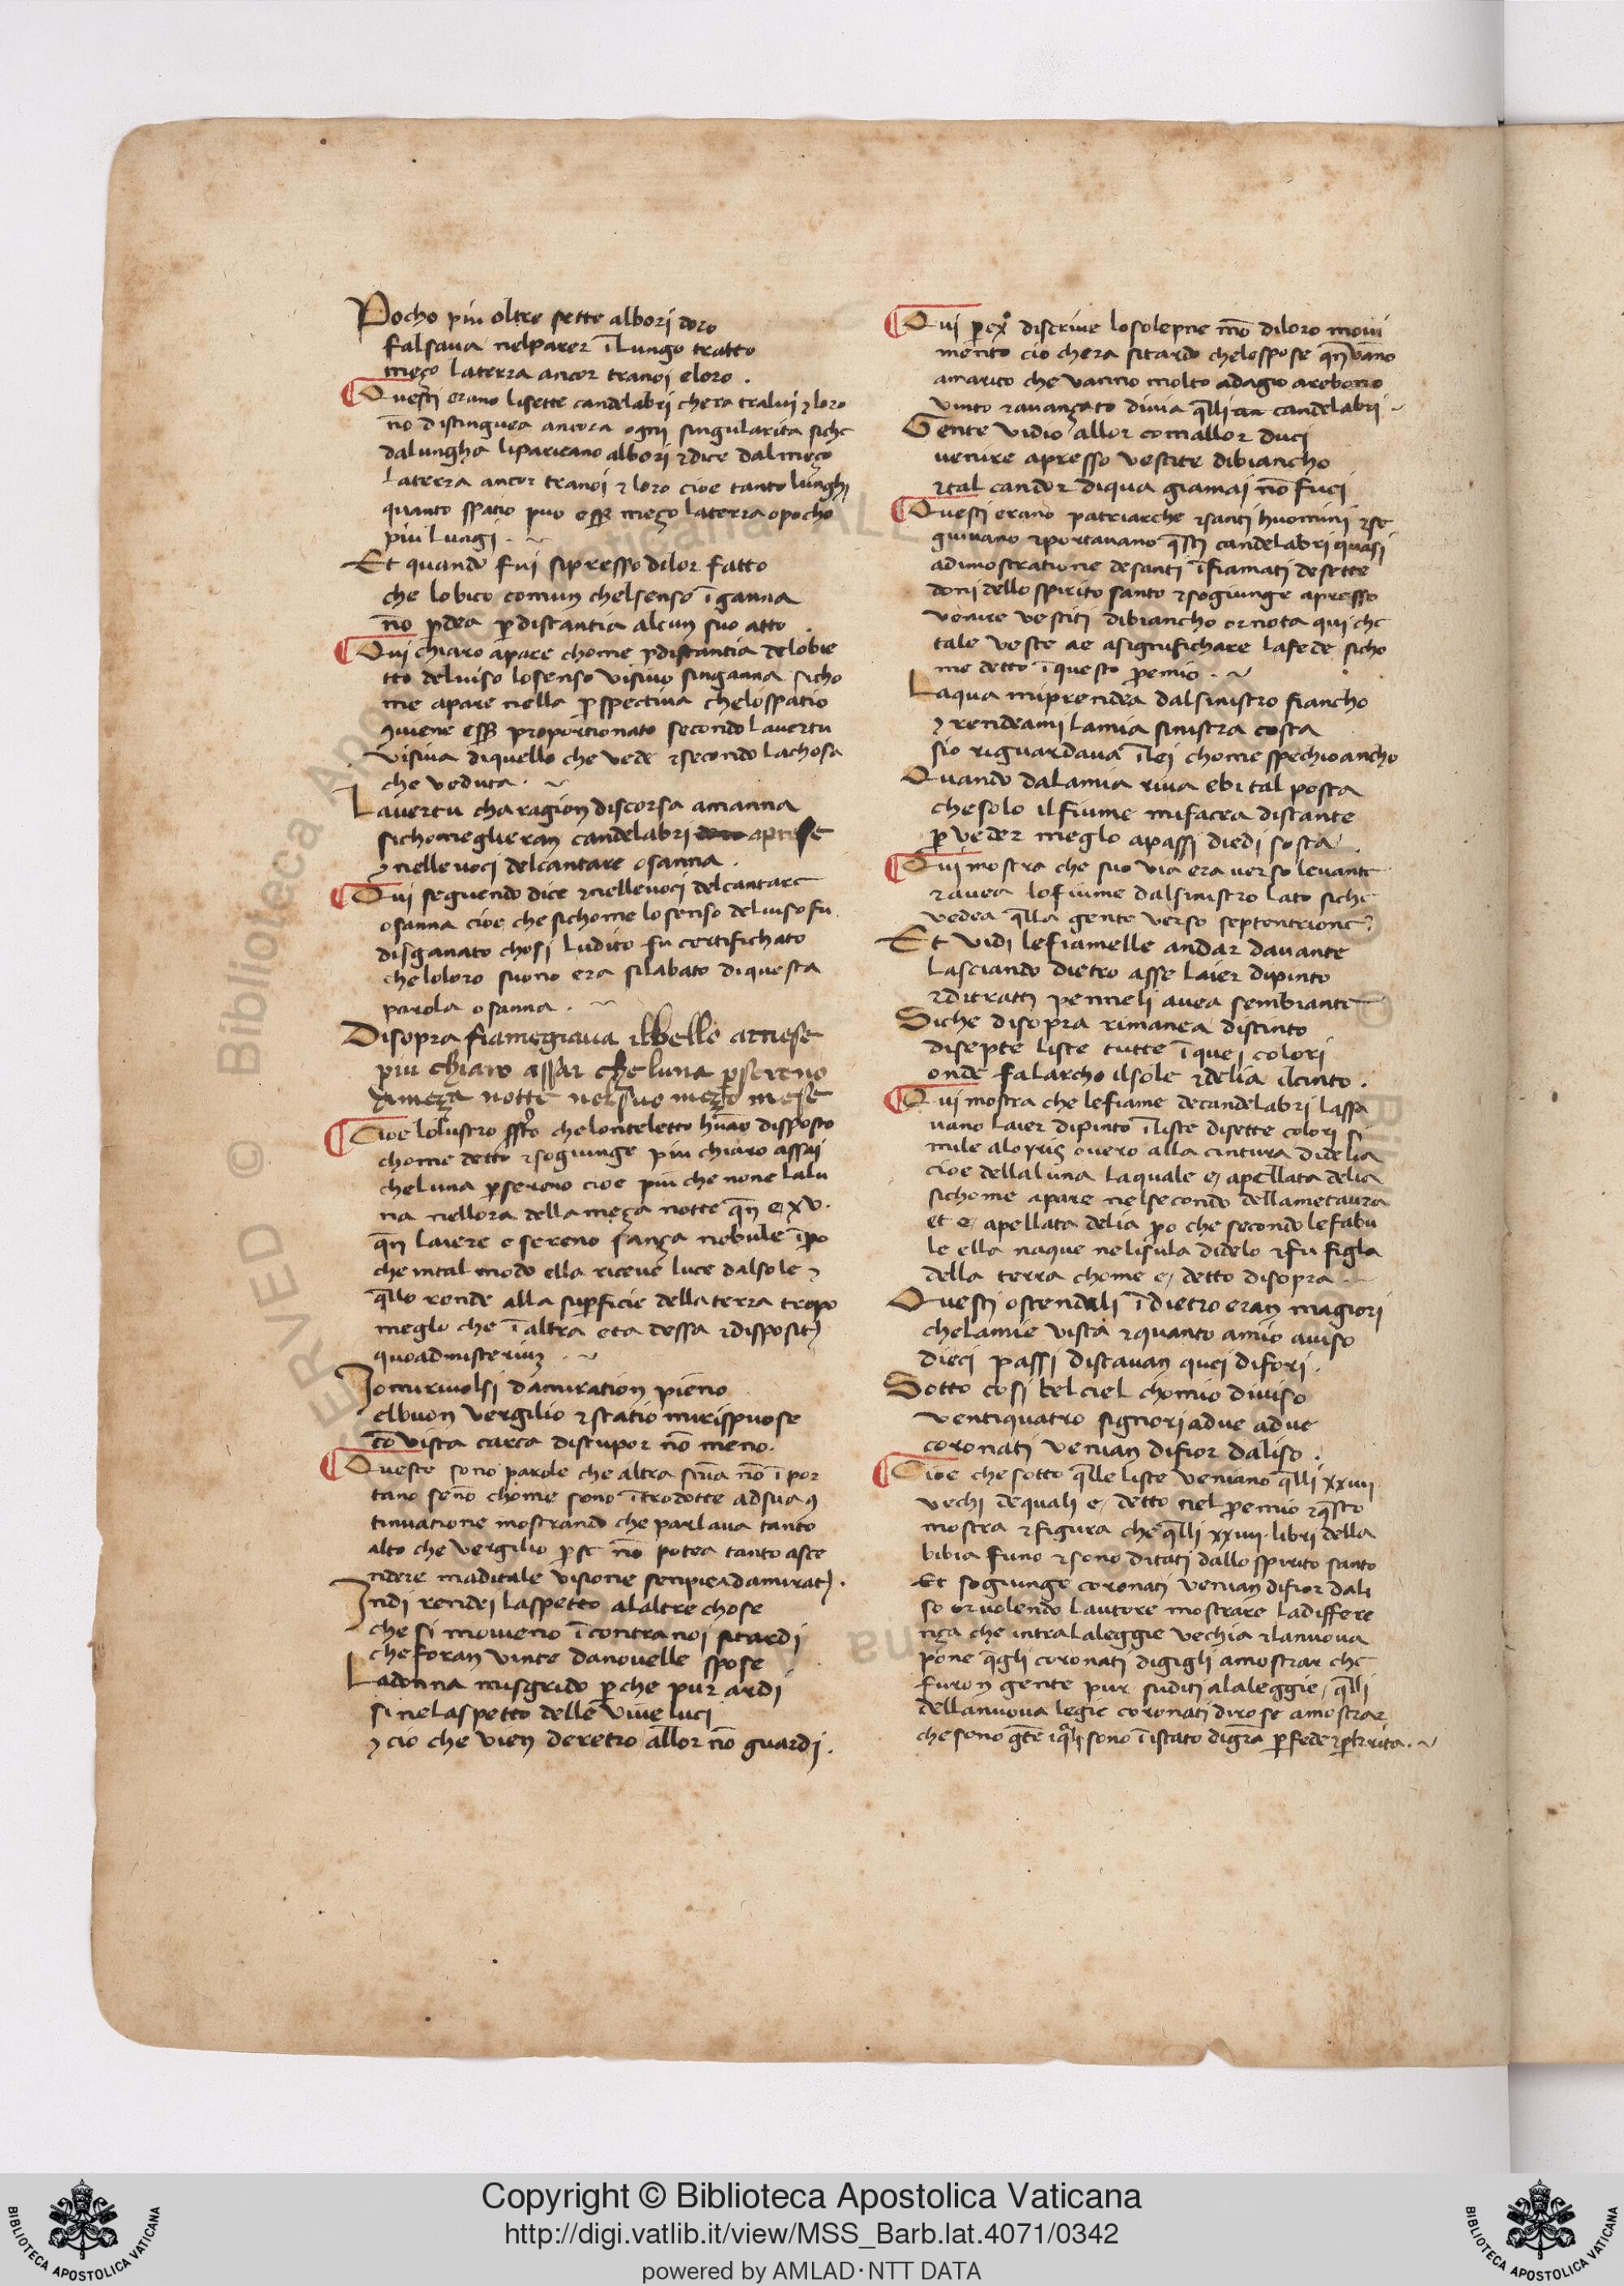 Pocho piu oltre sette albori doro
falsava nelparer ī lungo tratto
meço laterra ancor tranoi eloro .
Questi erano lisette candelabri chera tralui ⁊ loro
nō distinguea ancora ogni singularita siche
dalungha liparieano albori ⁊dice dal meço
laterra ancor tranoi ⁊ loro cioe tanto lunghi
quanto spatio puo eſſ meço laterra opocho
piu lungi .
Et quando fui sipresso dilor fatto
che lobieo comun chelsenso īganna
nō pdea pdistantia alcun suo atto .
Qui chiaro apare chome pdistantia delobie
tto deluiso losenso visiuo singanna sicho
me apare nella pspectiva chelospatio
ꝯuiene eſſ proporcionato secondo lavertu
visiua diquello che vede ⁊secondo lachosa
che veduta .
Lavertu charagion discorsa amanna
sichomeglieran candelabri aprese
⁊nelle voci delcantare osanna .
Qui seguendo dice ⁊nellevoci delcantare
osanna cioe che sichome lo senso deluiso fu
disganato chosi ludito fu certifichato
cheloloro suono era silabato diquesta
parola osanna .
Disopra fiamegiaua ilbello arnese
piu chiaro assai che luna pserено
dimeza notte nel suo mezo mese
Cioe lolustro che lonteletto hūāo disposto
chome detto ⁊sogiunge piu chiaro assai
cheluna psereno cioe piu che none lalu
na nellora della meça notte qn̄ e xv.
qn̄ laiere e sereno sança nebule īpo
che intal modo ella riceue luce dalsole ⁊
qllo rende alla supficie della terra tropo
meglo che ī altra eta dessa ⁊disposit
quoadmisterium .
Jomirivolsi damiration pieno
elbuon vergilio ⁊statio mirispuose
cō vista carca distupor nō meno.
Queste sono parole che altra snīa nō īpor
tano senō chome sono ītrodotte adsua ꝯ
tinuatione mostrando che parlaua tanto
alto che vergilio pse nō potea tanto asce
ndere maditale visione senpiea damirat .
Indi rendei laspetto alaltre chose
che si moveno īcontra noi sitardi
che foran vinte danovelle spose
Ladonna misgrido pche pur ardi
si nelaspetto delle vive luci
⁊ cio che vien deretro allor nō guardi .
Qui p discrive losolepne mō diloro movi
mento cio chera sitardo chelospose qn̄ vāno
amarito che vanno molto adagio arebono
vinto ⁊avançato divia qlli candelabri .
Gente vidio allor comallor duci
venire apresso vestite dibiancho
⁊tal candor diqua giamai nō fuci
Questi erano patriarche ⁊santi huomini ⁊se
guivano ⁊portavano qsti candelabri quasi
adimostratione desanti īfiamati desette
doni dello spirito santo ⁊sogiunge apresso
venire vestiti dibiancho or nota qui che
tale veste ae asignifichare lafede sicho
me detto ī questo pemio .
Laqua miprendea dalsinistro fiancho
⁊ rendeami lamia sinistra costa
sio riguardava ī lei chome spechio ancho
Quando dalamia riva ebi tal posta
chesolo il fiume mifacea distante
p veder meglo apassi diedi sosta .
Qui mostra che suo via era verso levante
⁊avea lofiume dalsinistro lato siche
vedea qlla gente verso septentrione
Et vidi lefiamelle andar davante
lasciando dietro asse laier dipinto
⁊ditratti penneli avea sembiante
Siche disopra rimanea distinto
disepte liste tutte ī quei colori
onde falarcho ilsole ⁊delia ilcinto .
Qui mostra che lefiame decandelabri lassa
vano laier dipinto ī liste disette colori si
mile aloyris overo alla cintura didelia
cioe della luna laquale e apellata delia
sichome apare nelsecondo dellametaura
et e apellata delia po che secondo lefabu
le ella naque nelisula didelo ⁊fu figla
della terra chome e detto disopra
Questi ostendali īdietro eran magiori
chelamie vista ⁊quanto amio aviso
dieci passi distavan quei difori .
Sotto cosi bel ciel chomio diviso
ventiquatro signori adue adue
coronati venian difior daliso .
Cioe che sotto qlle liste veniano qlli xxiiii
vechi dequali e detto nel pemio ⁊qsto
mostra ⁊figura che qlli xxiiii libri della
bibia funo ⁊sono ditati dallo spirito santo
Et sogiunge coronati venian difior dali
so or volendo lautore mostrare ladiffere
nça che intralaleggie vechia ⁊lanuova
pone qgli coronati digigli amostrar che
furon gente pur suditi alaleggie, qlli
dellanuova legie coronati dirose amostrar
che sono gte iqli sono īistato digrā p fede ⁊p
Copyright © Biblioteca Apostolica Vaticana
http://digi.vatlib.it/view/MSS_Barb.lat.4071/0342
powered by AMLAD·NTT DATA
BIBLIOTECA APOSTOLICA VATICANA
BIBLIOTECA APOSTOLICA VATICANA